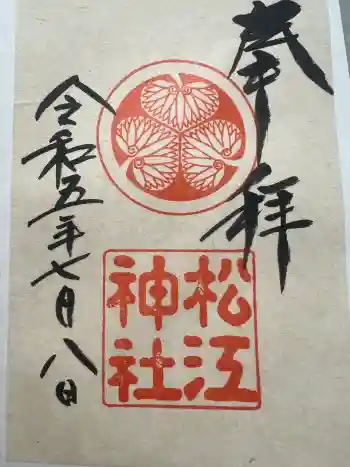 奉拝
松江
神社
令和五年七月八日